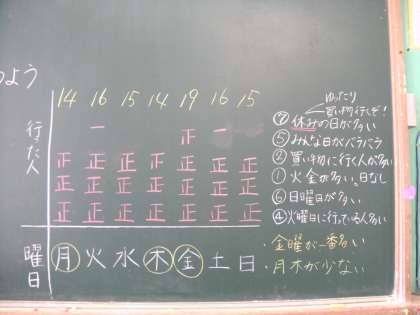 よう
14 16 15 14 19 16 15
行った人
一 正 一
正 正 正 正 正 正 正
正 正 正 正 正 正 正
正 正 正 正 正 正 正
曜日
月 火 水 木 金 土 日
ゆったり
買い物行くぞ!
⑦休みの日が多い
⑤みんな日がバラバラ
②買い物に行く人が多い
①火金が多い、日なし
⑥日曜日が多い
④火曜日に行っている人多い
・金曜が一番多い
・月木が少ない